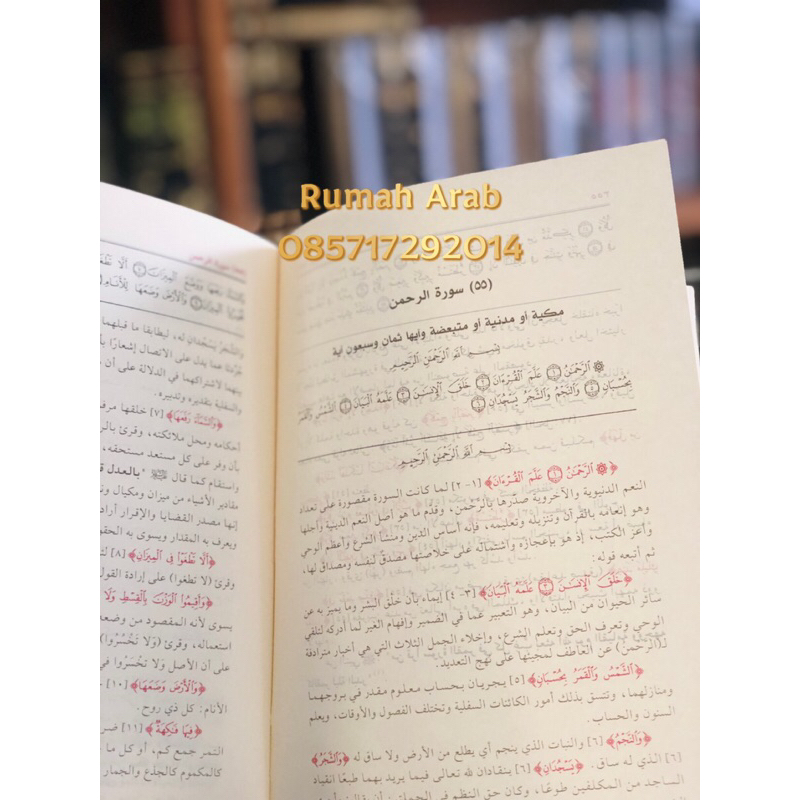 Rumah Arab
085717292014
٢٥٥
(٥٥) سورة الرحمن
مكية أو مدنية أو متبعضة وآيها ثمان وسبعون آية
بِسْمِ اللَّهِ الرَّحْمَٰنِ الرَّحِيمِ
الرَّحْمَٰنُ ١ عَلَّمَ الْقُرْءَانَ ٢ خَلَقَ الْإِنسَٰنَ ٣ عَلَّمَهُ الْبَيَانَ ٤ الشَّمْسُ وَالْقَمَرُ
بِحُسْبَانٍ ٥ وَالنَّجْمُ وَالشَّجَرُ يَسْجُدَانِ ٦
بِسْمِ اللَّهِ الرَّحْمَٰنِ الرَّحِيمِ
﴿الرَّحْمَٰنُ ١ عَلَّمَ الْقُرْءَانَ﴾ [١-٢] لما كانت السورة مقصورة على تعداد
النعم الدنيوية والأخروية صدّرها بالرحمن، وقدّم ما هو أصل النعم الدينية وأجلها
وهو إنعامه بالقرآن وتنزيله وتعليمه، فإنه أساس الدين ومنشأ الشرع وأعظم الوحي
وأعز الكتب، إذ هو بإعجازه واشتماله على خلاصتها مصدق لنفسه ومصداق لها،
ثم أتبعه قوله:
﴿خَلَقَ الْإِنسَٰنَ ٣ عَلَّمَهُ الْبَيَانَ﴾ [٣-٤] إيماء بأن خلق البشر وما يميز به عن
سائر الحيوان من البيان، وهو التعبير عما في الضمير وإفهام الغير لما أدركه لتلقي
الوحي وتعرف الحق وتعلم الشرع، وإخلاء الجمل الثلاث التي هي أخبار مترادفة
لـ(الرحمن) عن العاطف لمجيئها على نهج التعديد.
﴿الشَّمْسُ وَالْقَمَرُ بِحُسْبَانٍ﴾ [٥] يجريان بحساب معلوم مقدر في بروجهما
ومنازلهما، وتتسق بذلك أمور الكائنات السفلية وتختلف الفصول والأوقات، ويعلم
السنون والحساب.
﴿وَالنَّجْمُ﴾ [٦] والنبات الذي ينجم أي يطلع من الأرض ولا ساق له ﴿وَالشَّجَرُ﴾
[٦] الذي له ساق. ﴿يَسْجُدَانِ﴾ [٦] ينقادان لله تعالى فيما يريد بهما طبعًا انقياد
الساجد من المكلفين طوعًا، وكان حق النظم في الجملتين أن يقال:
وَالشَّجَرُ يَسْجُدَانِ له، ليطابقا ما قبلهما
بينهما لاشتراكهما في الدلالة على أن
بتقديره وتدبيره.
﴿وَالسَّمَاءَ رَفَعَهَا﴾ [٧] خلقها
ومحل ملائكته، وقرئ
بأن وفر على كل مستعد مستحقه،
واستقام كما قال ﷺ "بالعدل
مقادير الأشياء من ميزان ومكيال
﴿أَلَّا تَطْغَوْا فِي الْمِيزَانِ﴾ [٨]
وقرئ (لا تطغوا) على إرادة القول
﴿وَأَقِيمُوا الْوَزْنَ بِالْقِسْطِ وَلَا
يسوى لأنه المقصود من
استعماله، وقرئ (وَلَا تَخْسُرُوا)
على أن الأصل ولا تخسروا في
﴿وَالْأَرْضَ وَضَعَهَا﴾ [١٠]
الأنام: كل ذي روح.
﴿فِيهَا فَاكِهَةٌ﴾ [١١]
التمر جمع كم، أو كل ما
كالمكموم كالجذع والجمار